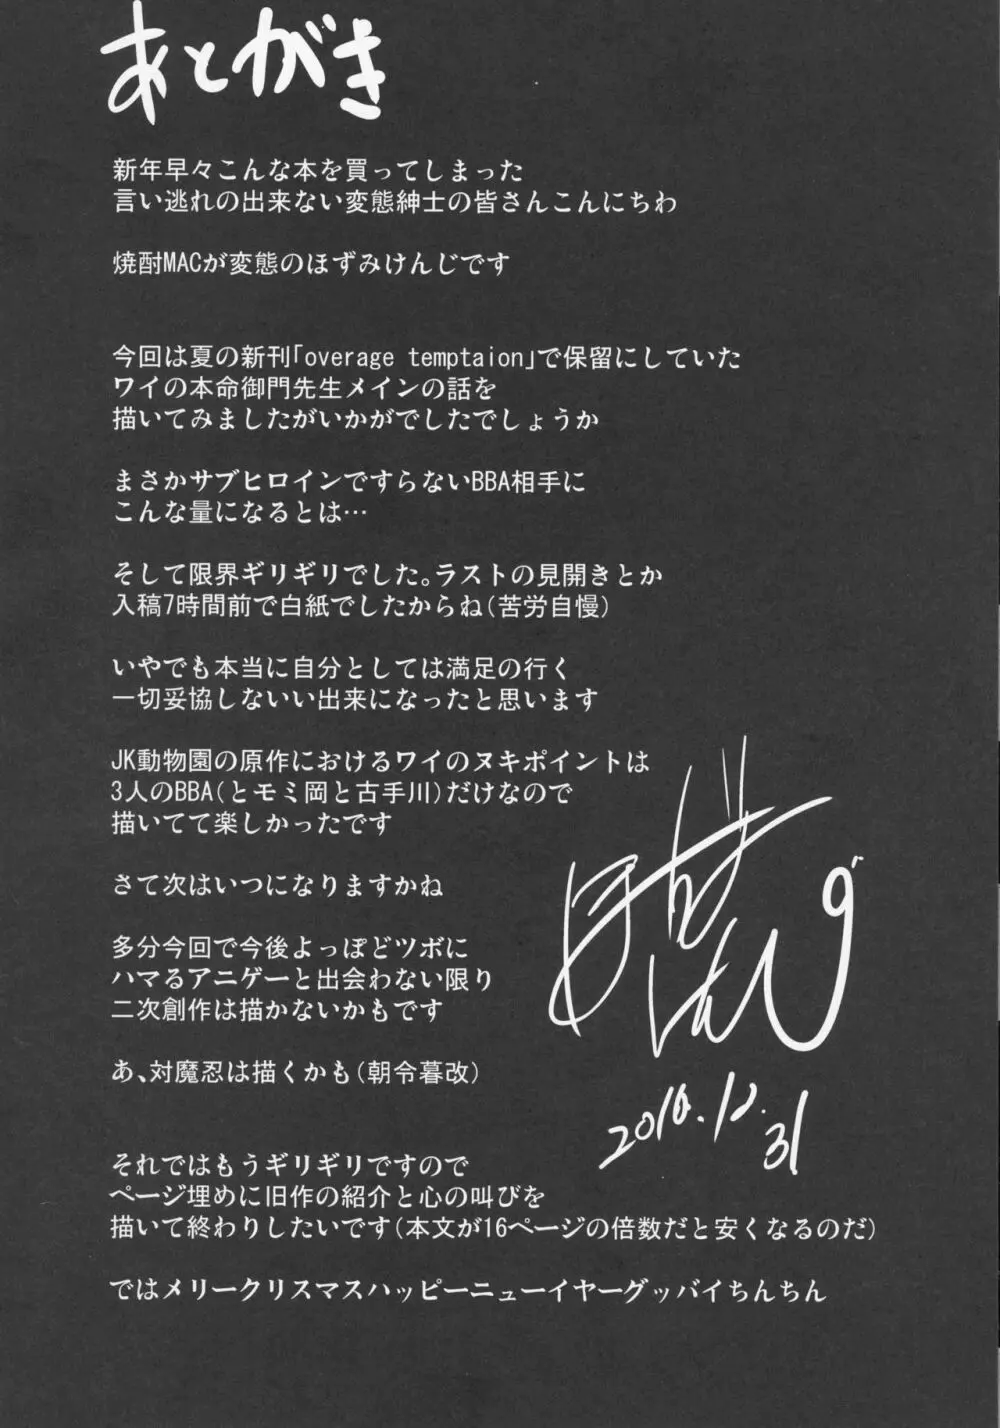 あとがき
新年早々こんな本を買ってしまった
言い逃れの出来ない変態紳士の皆さんこんにちわ
焼酎MACが変態のほずみけんじです
今回は夏の新刊「overage temptaion」で保留にしていた
ワイの本命御門先生メインの話を
描いてみましたがいかがでしたでしょうか
まさかサブヒロインですらないBBA相手に
こんな量になるとは…
そして限界ギリギリでした。ラストの見開きとか
入稿7時間前で白紙でしたからね(苦労自慢)
いやでも本当に自分としては満足の行く
一切妥協しないいい出来になったと思います
JK動物園の原作におけるワイのヌキポイントは
3人のBBA(とモミ岡と古手川)だけなので
描いてて楽しかったです
さて次はいつになりますかね
多分今回で今後よっぽどツボに
ハマるアニゲーと出会わない限り
二次創作は描かないかもです
あ、対魔忍は描くかも(朝令暮改)
2016.12.31
それではもうギリギリですので
ページ埋めに旧作の紹介と心の叫びを
描いて終わりしたいです(本文が16ページの倍数だと安くなるのだ)
ではメリークリスマスハッピーニューイヤーグッバイちんちん